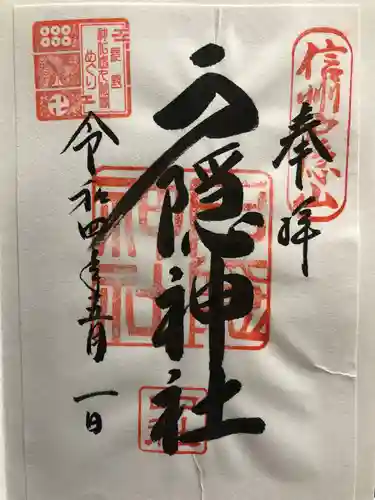 奉拝
信州戸隠山
戸隠神社
戸隠
神社
令和四年五月一日